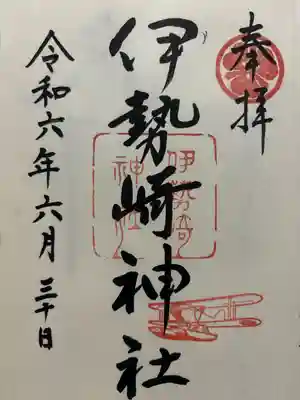 奉拝
伊勢崎神社
伊勢崎
神社
令和六年六月三十日